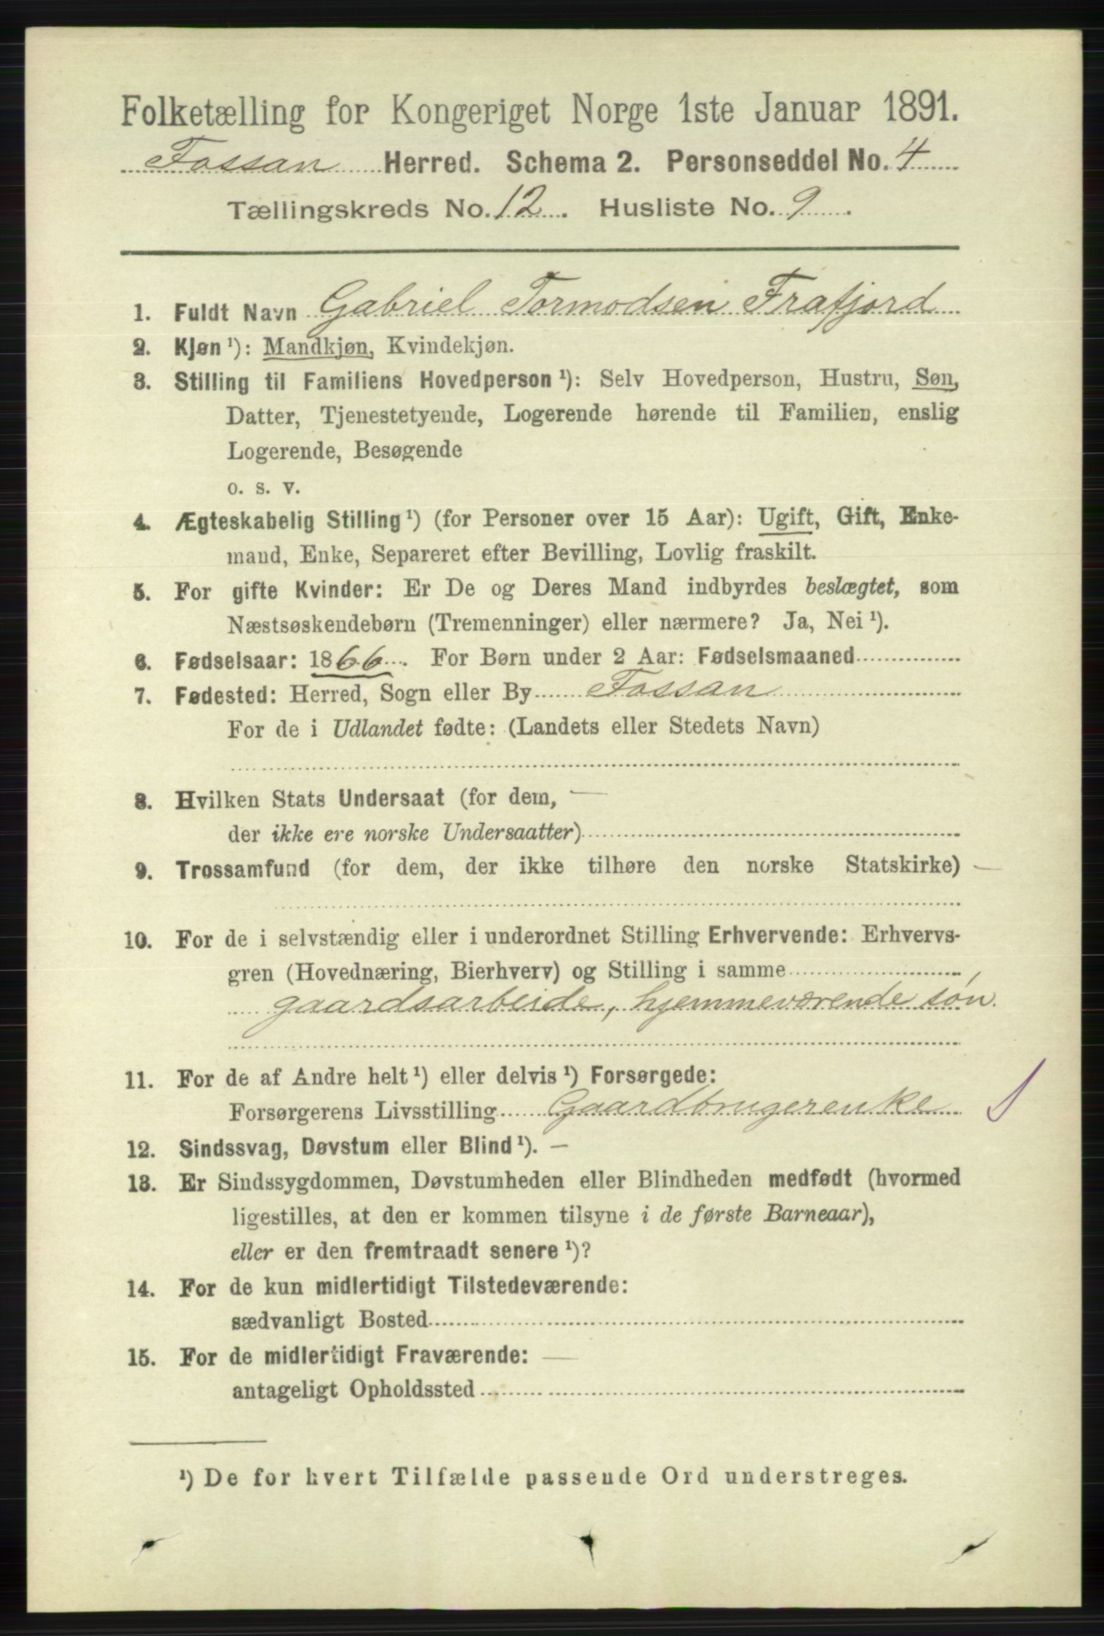 Folketælling for Kongeriget Norge 1ste Januar 1891.
Fossan Herred. Schema 2. Personseddel No. 4
Tællingskreds No. 12. Husliste No. 9.
1. Fuldt Navn Gabriel Tormodsen Frafjord
2. Kjøn ¹): Mandkjøn, Kvindekjøn.
3. Stilling til Familiens Hovedperson ¹): Selv Hovedperson, Hustru, Søn,
Datter, Tjenestetyende, Logerende hørende til Familien, enslig
Logerende, Besøgende
o. s. v.
4. Ægteskabelig Stilling ¹) (for Personer over 15 Aar): Ugift, Gift, Enke-
mand, Enke, Separeret efter Bevilling, Lovlig fraskilt.
5. For gifte Kvinder: Er De og Deres Mand indbyrdes beslægtet, som
Næstsøskendebørn (Tremenninger) eller nærmere? Ja, Nei ¹).
6. Fødselsaar: 1866. For Børn under 2 Aar: Fødselsmaaned
7. Fødested: Herred, Sogn eller By Fossan
For de i Udlandet fødte: (Landets eller Stedets Navn)
8. Hvilken Stats Undersaat (for dem, —
der ikke ere norske Undersaatter)
9. Trossamfund (for dem, der ikke tilhøre den norske Statskirke) —
10. For de i selvstændig eller i underordnet Stilling Erhvervende: Erhvervs-
gren (Hovednæring, Bierhverv) og Stilling i samme
gaardsarbeide, hjemmeværende søn.
11. For de af Andre helt ¹) eller delvis ¹) Forsørgede:
Forsørgerens Livsstilling Gaardbrugerenke
12. Sindssvag, Døvstum eller Blind ¹). —
13. Er Sindssygdommen, Døvstumheden eller Blindheden medfødt (hvormed
ligestilles, at den er kommen tilsyne i de første Barneaar),
eller er den fremtraadt senere ¹)?
14. For de kun midlertidigt Tilstedeværende:
sædvanligt Bosted
15. For de midlertidigt Fraværende: —
antageligt Opholdssted
¹) De for hvert Tilfælde passende Ord understreges.